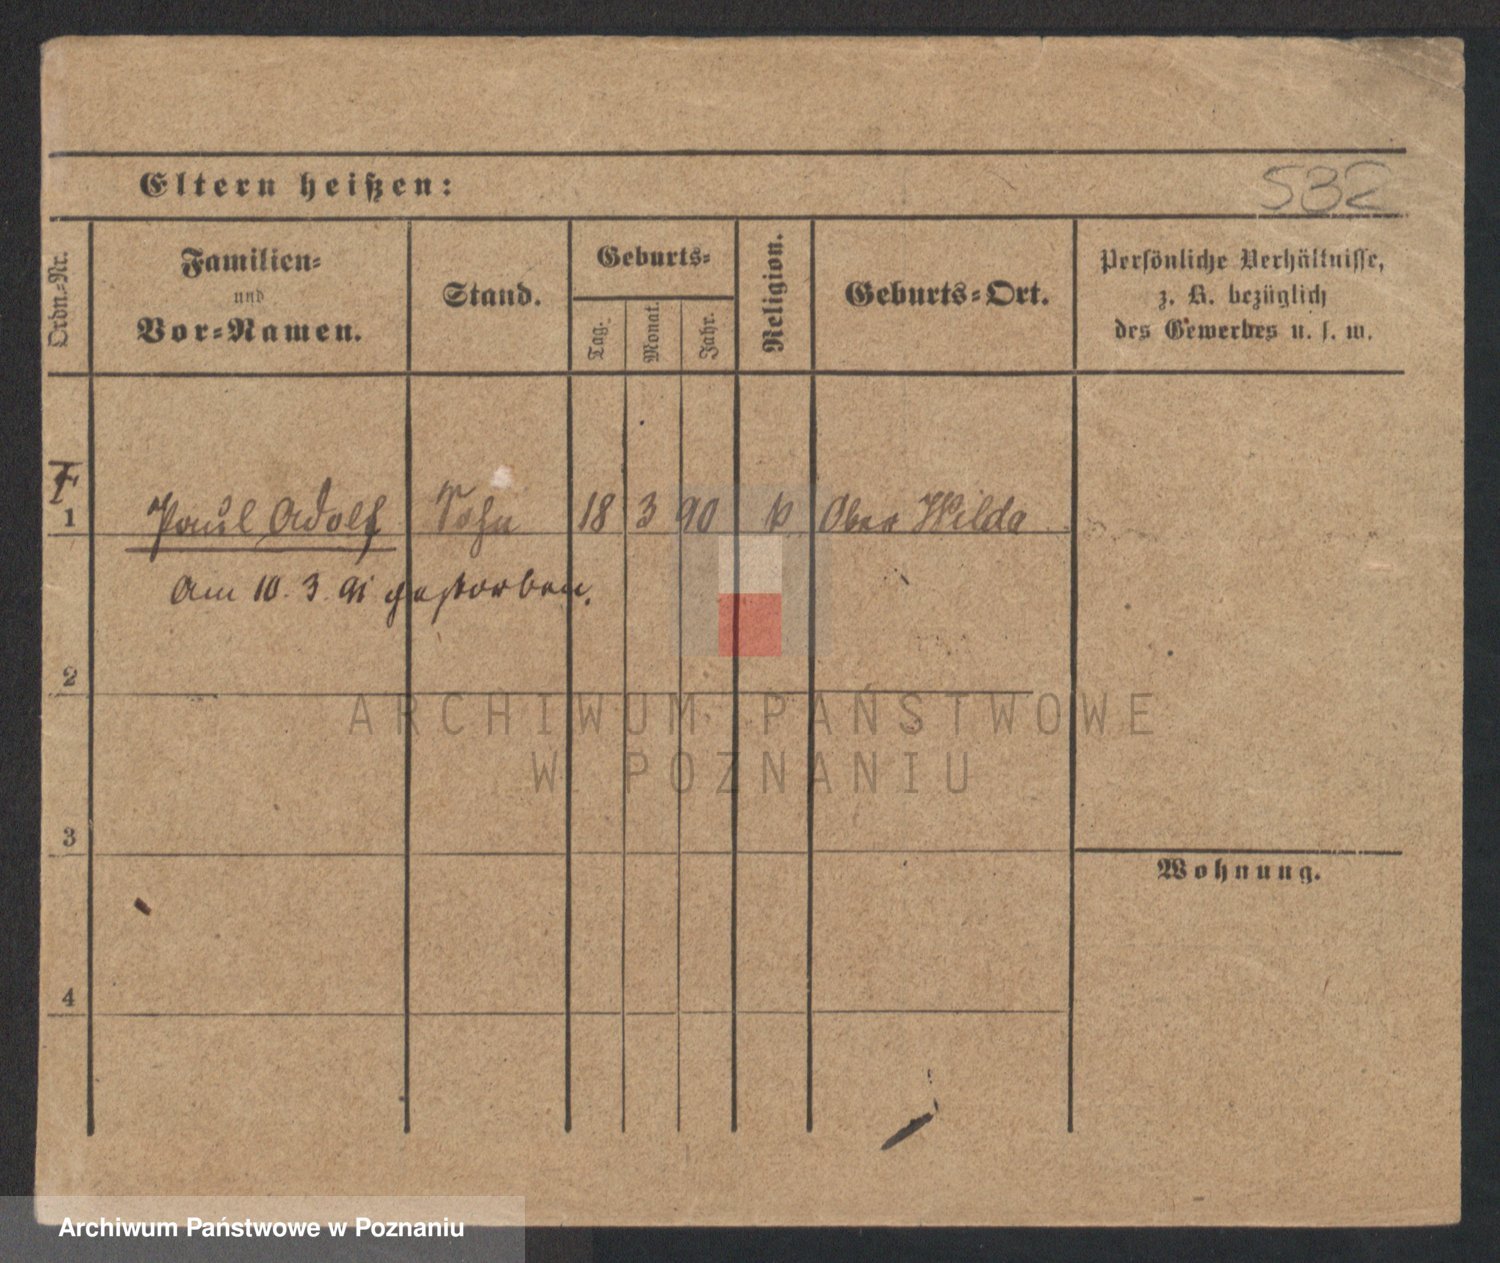 Eltern heißen:
532
Ordn.-Nr.
Familien-
und
Vor-Namen.
Stand.
Geburts-
Tag.
Monat.
Jahr.
Religion.
Geburts-Ort.
Persönliche Verhältnisse,
z. B. bezüglich
des Gewerbes u. s. w.
1 Paul Adolf Sohn 18 3 90 Ober Wilda
Am 10. 3. 91 gestorben.
2
3
4
Wohnung.
ARCHIWUM PAŃSTWOWE
W POZNANIU
Archiwum Państwowe w Poznaniu